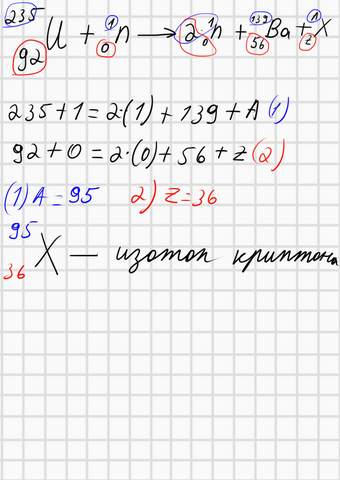 ²³⁵₉₂U + ¹₀n → 2¹₀n + ¹³⁹₅₆Ba + ᴬ_zX
235+1=2·(1)+139+A (1)
92+0=2·(0)+56+z (2)
(1) A=95 2) Z=36
⁹⁵₃₆X — изотоп криптона